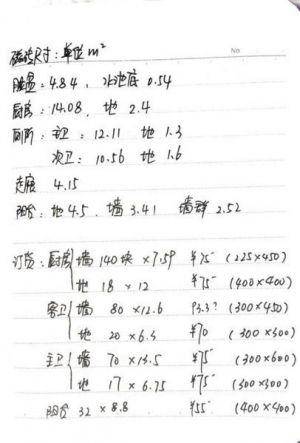 磁砖尺寸:单位 m²
No
脸盆:4.84, 水池底 0.54
厨房:14.08, 地 2.4
厕所:主卫:12.11 地 1.3
次卫:10.56 地 1.6
走廊 4.15
阳台:地 4.5 墙 3.41 墙群 2.52
订货:厨房 墙 140块 ×7.59 ¥75 (225×450)
地 18 × 12 ¥75 (400×400)
客卫 墙 80 ×12.6 93.3? (300×450)
地 20 ×6.3 ¥70 (300×300)
主卫 墙 70 ×13.5 ¥75 (300×600)
地 17 × 6.75 ¥75 (300×300)
阳台 32 × 8.8 ¥55 (400×400)